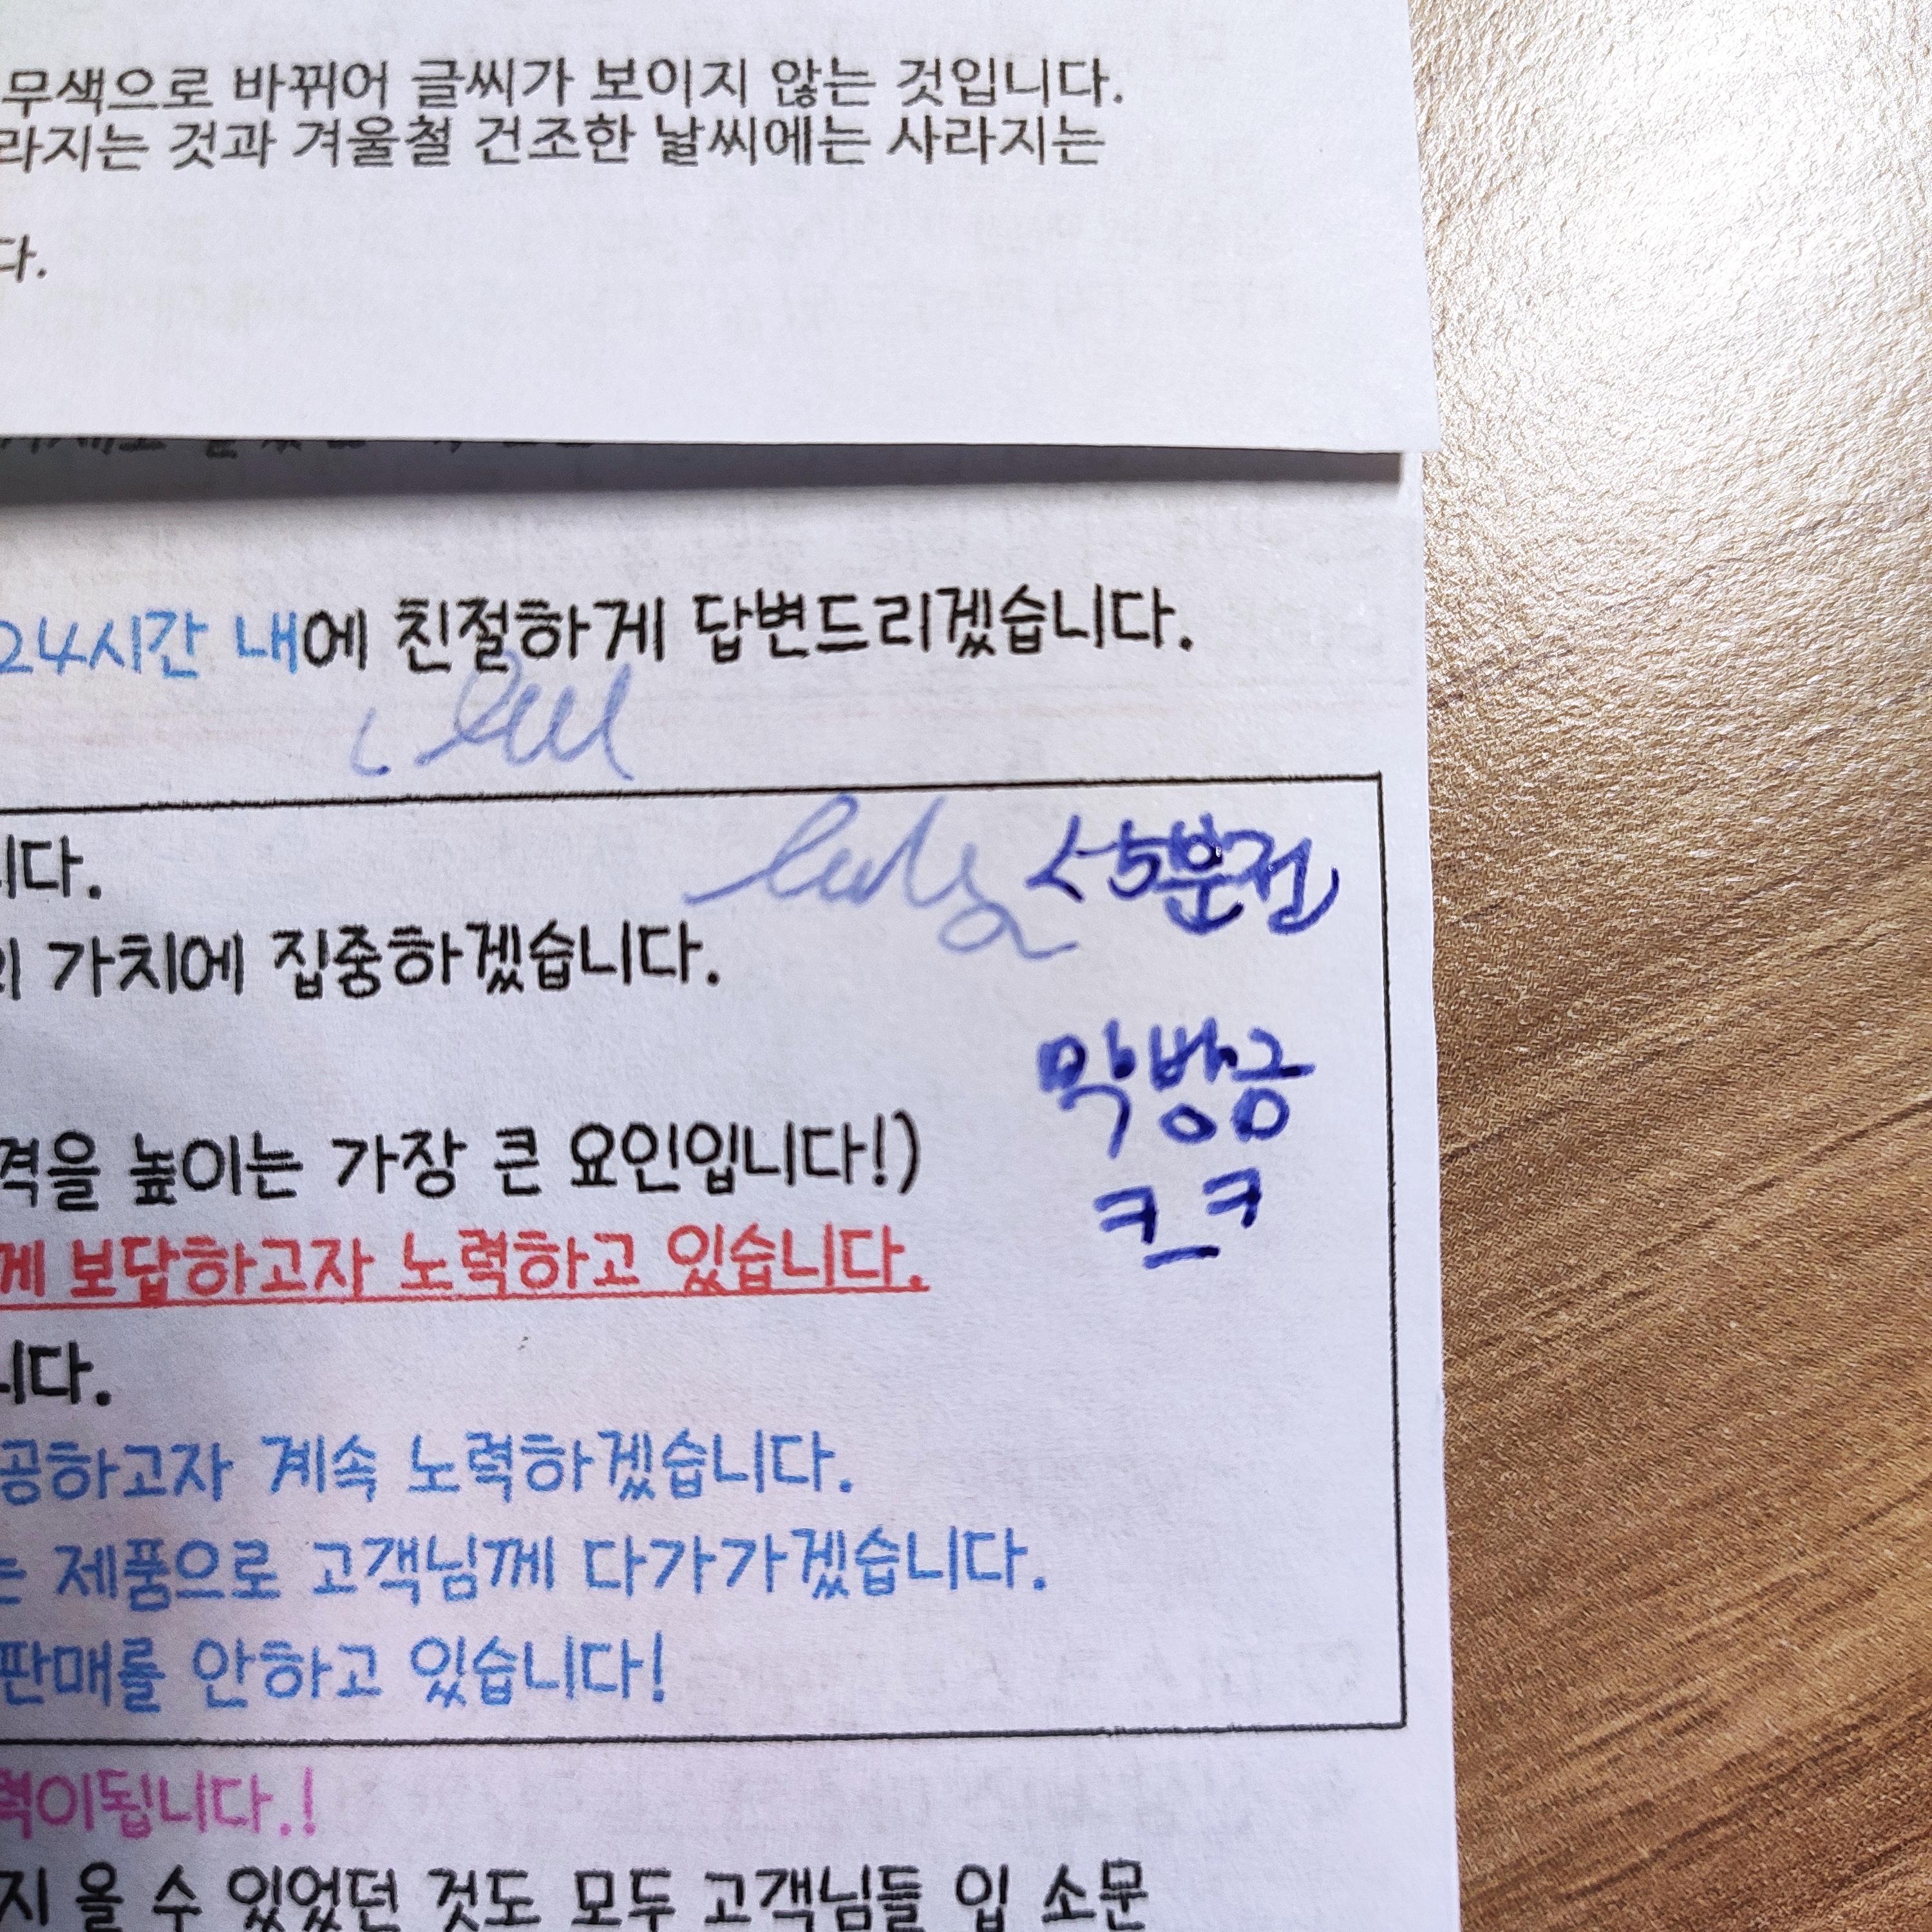 무색으로 바뀌어 글씨가 보이지 않는 것입니다.
라지는 것과 겨울철 건조한 날씨에는 사라지는
다.
24시간 내에 친절하게 답변드리겠습니다.
니다.
<5분전
가치에 집중하겠습니다.
막방금
격을 높이는 가장 큰 요인입니다!)
ㅋ_ㅋ
께 보답하고자 노력하고 있습니다.
니다.
공하고자 계속 노력하겠습니다.
는 제품으로 고객님께 다가가겠습니다.
판매를 안하고 있습니다!
력이됩니다.!
지 올 수 있었던 것도 모두 고객님들 입 소문